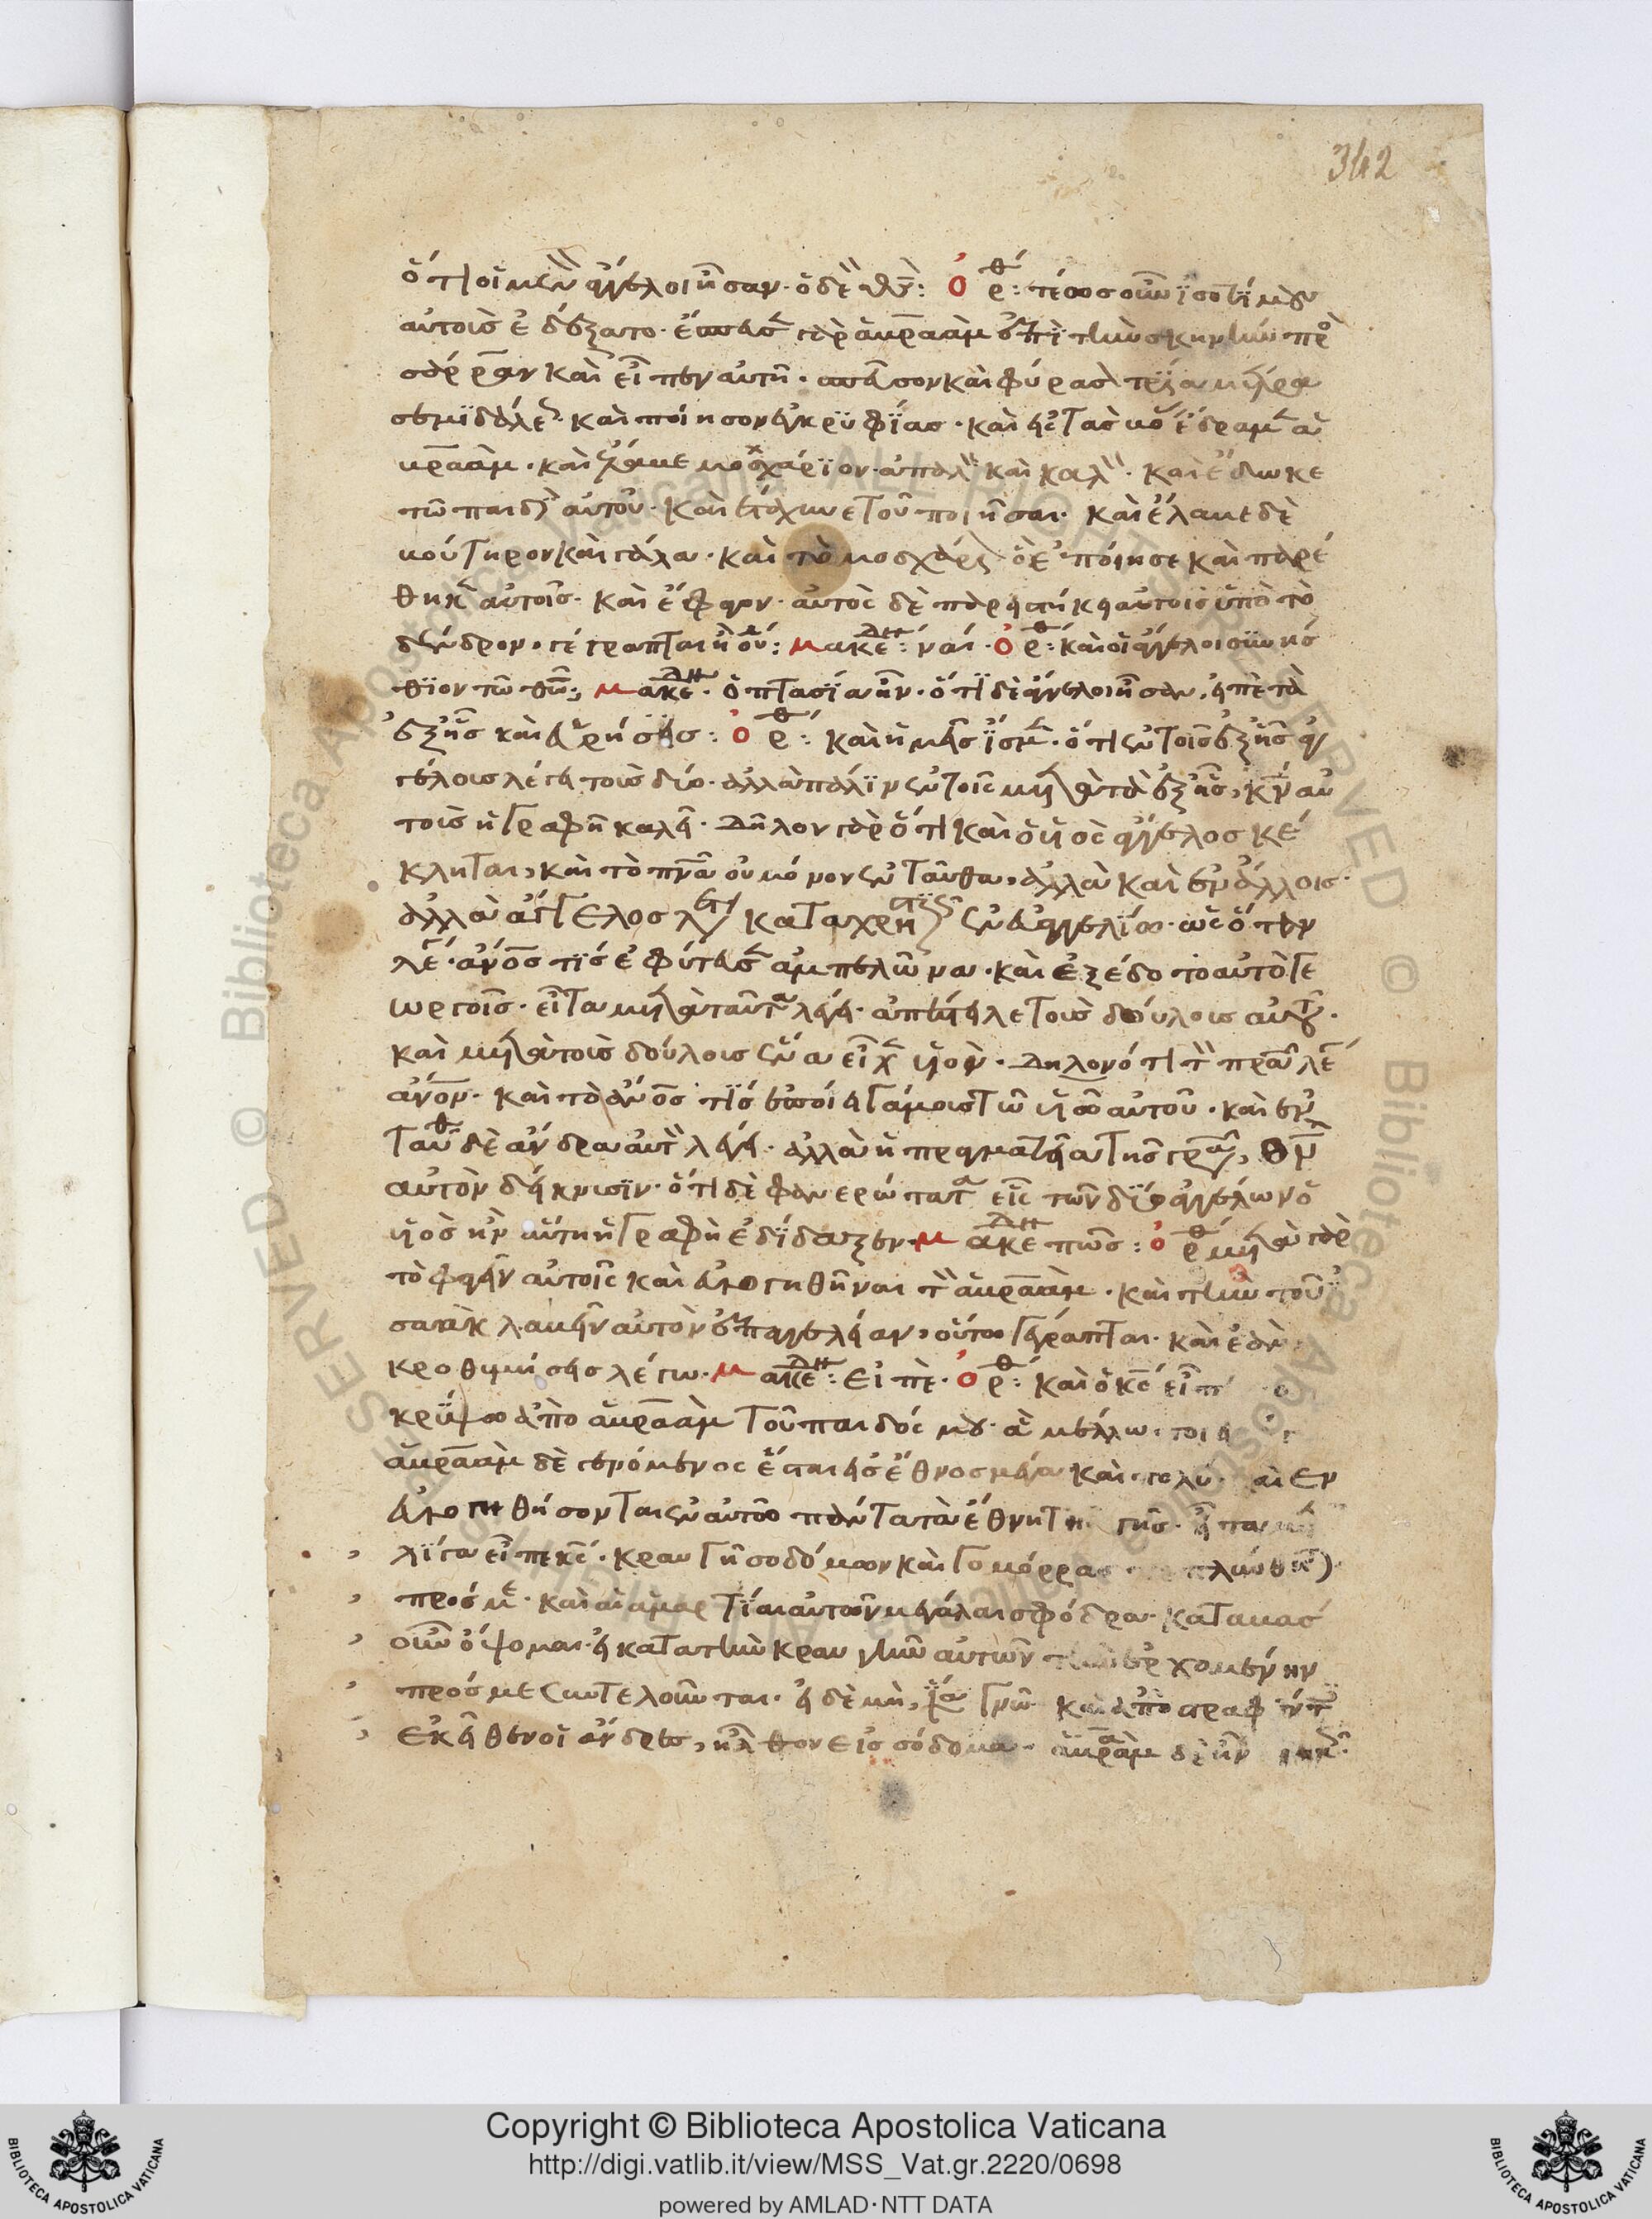 342
ὅτι οἱ μὲν ἄγγελοι ἦσαν. ὁ δὲ θς: Ὀρθ: πῶς οὖν ἰσοτίμως
αὐτοὺς ἐδέξατο. ἔσπευσε γὰρ ἀβραὰμ ἐπὶ τὴν σκηνὴν πρὸς
σάρραν καὶ εἶπεν αὐτῆ. σπεῦσον καὶ φύρασον τρία μέτρα
σεμιδάλεως. καὶ ποίησον ἐγκρυφίας. καὶ εἰς τὰς βό ἔδραμεν ἀ
βραάμ. καὶ ἔλαβε μοσχάριον ἁπαλὸν καὶ καλόν. καὶ ἔδωκε
τῶ παιδὶ αὐτοῦ. καὶ ἐτάχυνε τοῦ ποιῆσαι. καὶ ἔλαβε δὲ
βούτηρον καὶ γάλα. καὶ τὸ μοσχάριον ὃ ἐποίησε καὶ παρέ
θηκεν αὐτοῖς. καὶ ἔφαγον. αὐτὸς δὲ παρειστήκει αὐτοῖς ὑπὸ τὸ
δένδρον. γέγραπται ἢ οὔ: μακεδ: ναί. Ὀρθ: καὶ οἱ ἄγγελοι συνήσ
θιον τῶ θῶ: μακεδ. ὀπτασία ἦν. ὅτι δὲ ἄγγελοι ἦσαν, εἰπὲ τὰ
ἑξῆς καὶ εὑρήσεις: Ὀρθ: καὶ ἡμεῖς ἴσμεν. ὅτι ἐν τοῖς ἑξῆς ἀγ
γέλους λέγει τοὺς δύο. ἀλλὰ πάλιν ἐν τοῖς μετὰ τὰ ἑξῆς, κν αὐ
τοὺς ἡ γραφὴ καλεῖ. δῆλον γὰρ ὅτι καὶ ὁ ὑὸς ἄγγελος κέ
κληται, καὶ τὸ πνα οὐ μόνον ἐνταῦθα, ἀλλὰ καὶ ἐν ἄλλοις.
ἀλλὰ ἄγγελος λέγεται καταχρηστικῶς ἐν εὐαγγελίω. ὡς ὅταν
λέ. ανος τίς ἐφύτευσεν ἀμπελῶνα. καὶ ἐξέδοτο αὐτὸ γε
ωργοῖς. εἶτα μετὰ ταῦτα λέγει. ἀπέστειλε τοὺς δούλους αὐτοῦ.
καὶ μετὰ τοὺς δούλους ἕνα εἶχεν ὑόν. δηλονότι τὸν πρα λέ
ανον. καὶ τὸ ανος τίς ἐποίει γάμους τῶ ὑῶ αὐτοῦ. καὶ ἐν
ταῦθα δὲ ἄνδρα αὐτὸν λέγει. ἀλλὰ ἡ πραγματεία τῆς γραφῆς, θν
αὐτὸν δείκνυσιν. ὅτι δὲ φανερώτατα εἷς τῶν δύο ἀγγέλων ὁ
ὑὸς ἦν αὕτη ἡ γραφὴ ἐδίδαξεν. μακεδ πῶς: Ὀρθ μετὰ γὰρ
τὸ φαγεῖν αὐτοῖς καὶ εὐλογηθῆναι τὸν ἀβραάμ. καὶ τὴν τοῦ ἰ
σαὰκ λαβεῖν αὐτὸν ἐπαγγελείαν, οὕτω γέγραπται. καὶ ἐὰν
κροθυμήσεις λέγω. μακεδ: εἰπέ. Ὀρθ: καὶ ὁ κς εἶπ
κρύψω ἀπὸ ἀβραὰμ τοῦ παιδός μου ἃ μέλλω ποι
ἀβραὰμ δὲ γενόμενος ἔσται εἰς ἔθνος μέγα καὶ πολύ. καὶ ἐν
εὐλογηθήσονται ἐν αὐτῶ πάντα τὰ ἔθνη τῆς γῆς. εἶτα με
λίγα εἶπε κς. κραυγῆ σοδόμων καὶ γομόρρας πεπλήθυνται
πρός με. καὶ αἱ ἁμαρτίαι αὐτῶν μεγάλαι σφόδρα. καταβὰς
οὖν ὄψομαι. εἰ κατὰ τὴν κραυγὴν αὐτῶν τὴν ἐρχομένην
πρός με συντελοῦνται. εἰ δὲ μή, ἵνα γνῶ. καὶ ἀποστραφέντες
ἐκεῖθεν οἱ ἄνδρες, ἦλθον εἰς σόδομα. ἀβραὰμ δὲ ἦν
Copyright © Biblioteca Apostolica Vaticana
http://digi.vatlib.it/view/MSS_Vat.gr.2220/0698
powered by AMLAD·NTT DATA
BIBLIOTECA APOSTOLICA VATICANA
BIBLIOTECA APOSTOLICA VATICANA